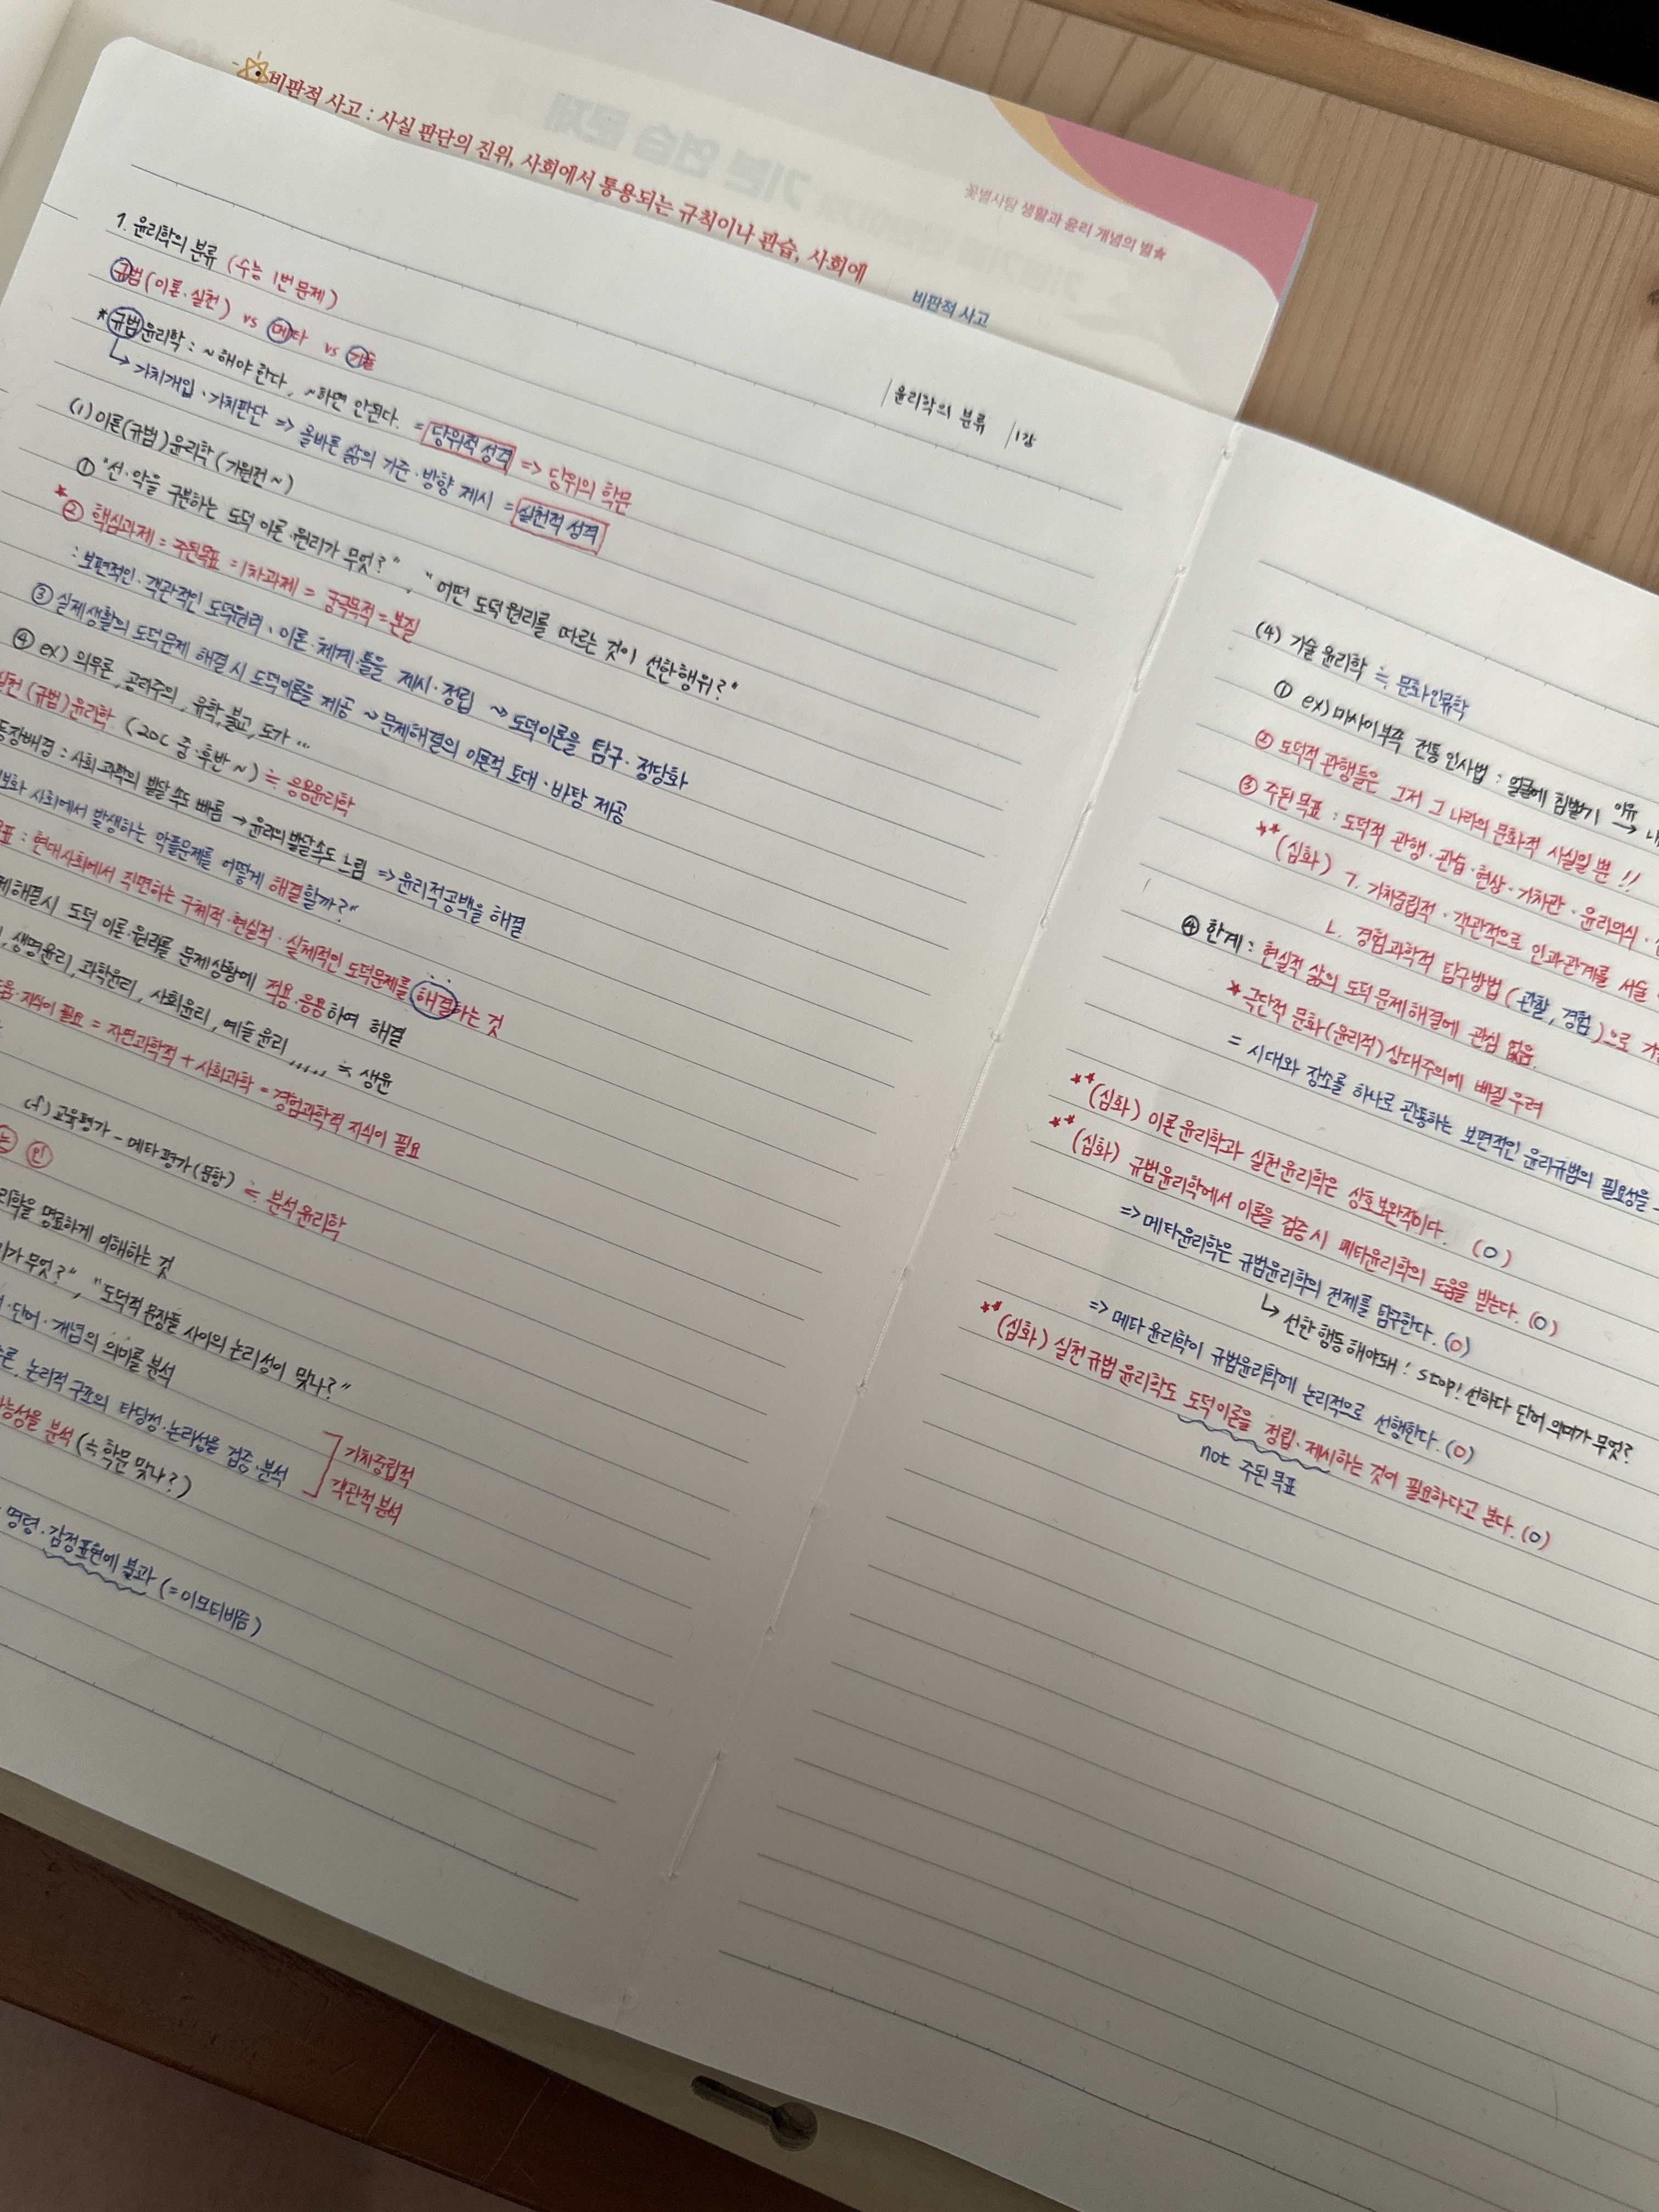 비판적 사고 : 사실 판단의 진위, 사회에서 통용되는 규칙이나 관습, 사회에
꽃별사탕 생활과 윤리 개념의 별★
비판적 사고
기본 연습 문제
윤리학의 분류 1강
1. 윤리학의 분류 (수능 1번 문제)
규범(이론·실천) vs 메타 vs 기술
* 규범윤리학 : ~해야 한다, ~하면 안된다. = 당위적 성격 => 당위의 학문
↳ 가치개입·가치판단 => 올바른 삶의 기준·방향 제시 = 실천적 성격
(1) 이론(규범)윤리학 (기원전~)
① "선·악을 구분하는 도덕 이론·원리가 무엇?", "어떤 도덕 원리를 따르는 것이 선한행위?"
★② 핵심과제 = 주된목표 = 1차과제 = 궁극목적 = 본질
: 보편적인·객관적인 도덕원리, 이론·체계·틀을 제시·정립 ~> 도덕이론을 탐구·정당화
③ 실제생활의 도덕문제 해결 시 도덕이론을 제공 ~> 문제해결의 이론적 토대·바탕 제공
④ ex) 의무론, 공리주의, 유학, 불교, 도가 ...
실천(규범)윤리학 (20C 중·후반~) ≒ 응용윤리학
등장배경 : 사회 과학의 발달 속도 빠름 → 윤리의 발달속도 느림 => 윤리적공백을 해결
사회에서 발생하는 악플문제를 어떻게 해결할까?"
: 현대사회에서 직면하는 구체적·현실적·실제적인 도덕문제를 해결하는 것
해결시 도덕 이론·원리를 문제상황에 적용·응용하여 해결
, 생명윤리, 과학윤리, 사회윤리, 예술윤리, ..... ≒ 생윤
지식이 필요 = 자연과학적 + 사회과학 = 경험과학적 지식이 필요
cf) 교육평가 - 메타평가(문항) ≒ 분석윤리학
논 인
명료하게 이해하는 것
무엇?", "도덕적 문장들 사이의 논리성이 맞나?"
·단어·개념의 의미를 분석
논리적 구조의 타당성·논리성을 검증·분석
가치중립적
객관적 분석
분석 (≒ 학문 맞나?)
명령·감정표현에 불과 (=이모티비즘)
(4) 기술 윤리학 ≒ 문화인류학
① ex) 마사이부족 전통 인사법 : 얼굴에 침뱉기 이유 →
② 도덕적 관행들은 그저 그 나라의 문화적 사실일 뿐!!
③ 주된 목표 : 도덕적 관행·관습·현상·가치관·윤리의식·
★★(심화) ㄱ. 가치중립적·객관적으로 인과관계를 서술
ㄴ. 경험과학적 탐구방법(관찰, 경험)으로
④ 한계 : 현실적 삶의 도덕 문제해결에 관심 없음.
★ 극단적 문화(윤리적)상대주의에 빠질 우려
= 시대와 장소를 하나로 관통하는 보편적인 윤리규범의 필요성을
★★(심화) 이론윤리학과 실천윤리학은 상호보완적이다. (O)
★★(심화) 규범윤리학에서 이론을 검증시 메타윤리학의 도움을 받는다. (O)
=> 메타윤리학은 규범윤리학의 전제를 탐구한다. (O)
↳ 선한 행동 해야돼! stop! 선하다 단어 의미가 무엇?
=> 메타 윤리학이 규범윤리학에 논리적으로 선행한다. (O)
★★(심화) 실천 규범 윤리학도 도덕이론을 정립·제시하는 것이 필요하다고 본다. (O)
not 주된 목표